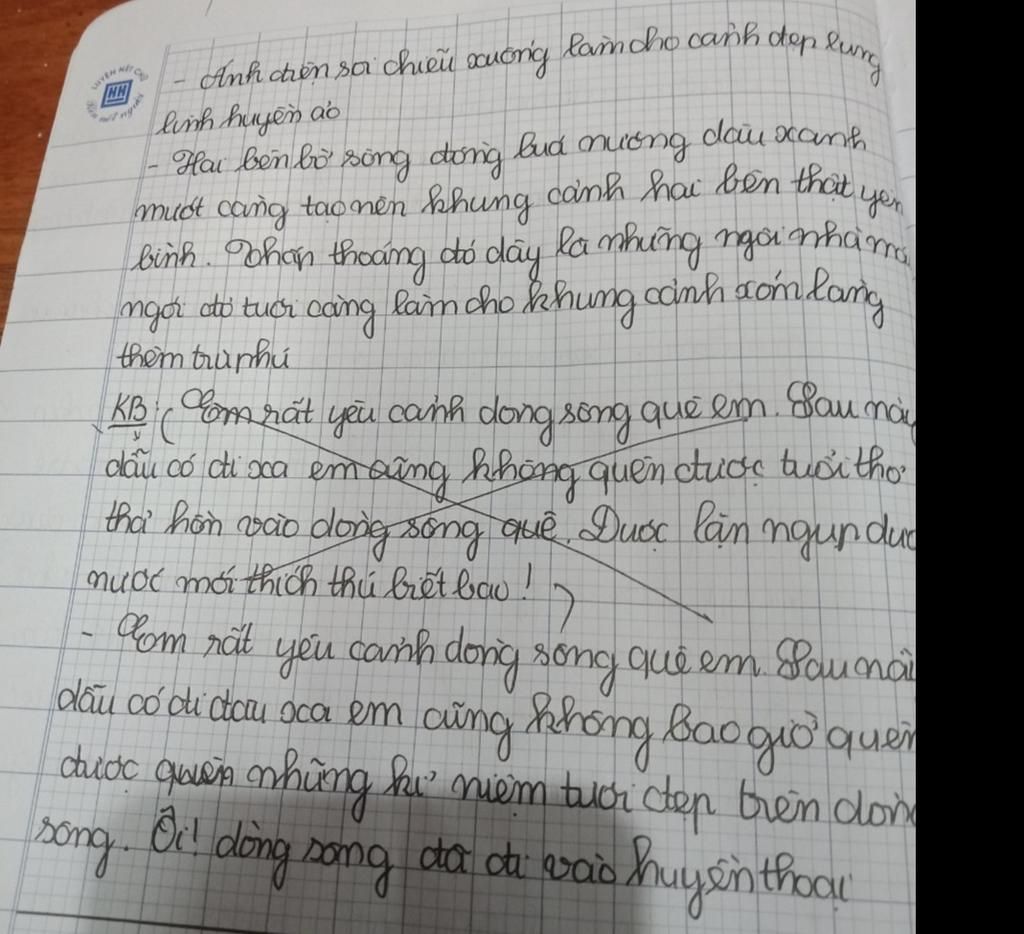 - Ánh điện soi chiếu xuống làm cho cảnh đẹp lung
linh huyền ảo
- Hai bên bờ sông đồng lúa nương dâu xanh
mướt càng tạo nên khung cảnh hai bên thật yên
bình. Phấn thoáng đó đây là những ngôi nhà mái
ngói đỏ tươi càng làm cho khung cảnh xóm làng
thêm trù phú
KB: ( Em rất yêu cảnh dòng sông quê em. Sau này
dẫu có đi xa em cũng không quên được tuổi thơ
thả hồn vào dòng sông quê. Được lặn ngụp dưới
nước mới thích thú biết bao! )
- Em rất yêu cảnh dòng sông quê em. Sau này
dẫu có đi đâu xa em cũng không bao giờ quên
được quên những kỉ niệm tươi đẹp trên dòng
sông. Ôi! dòng sông đã đi vào huyền thoại